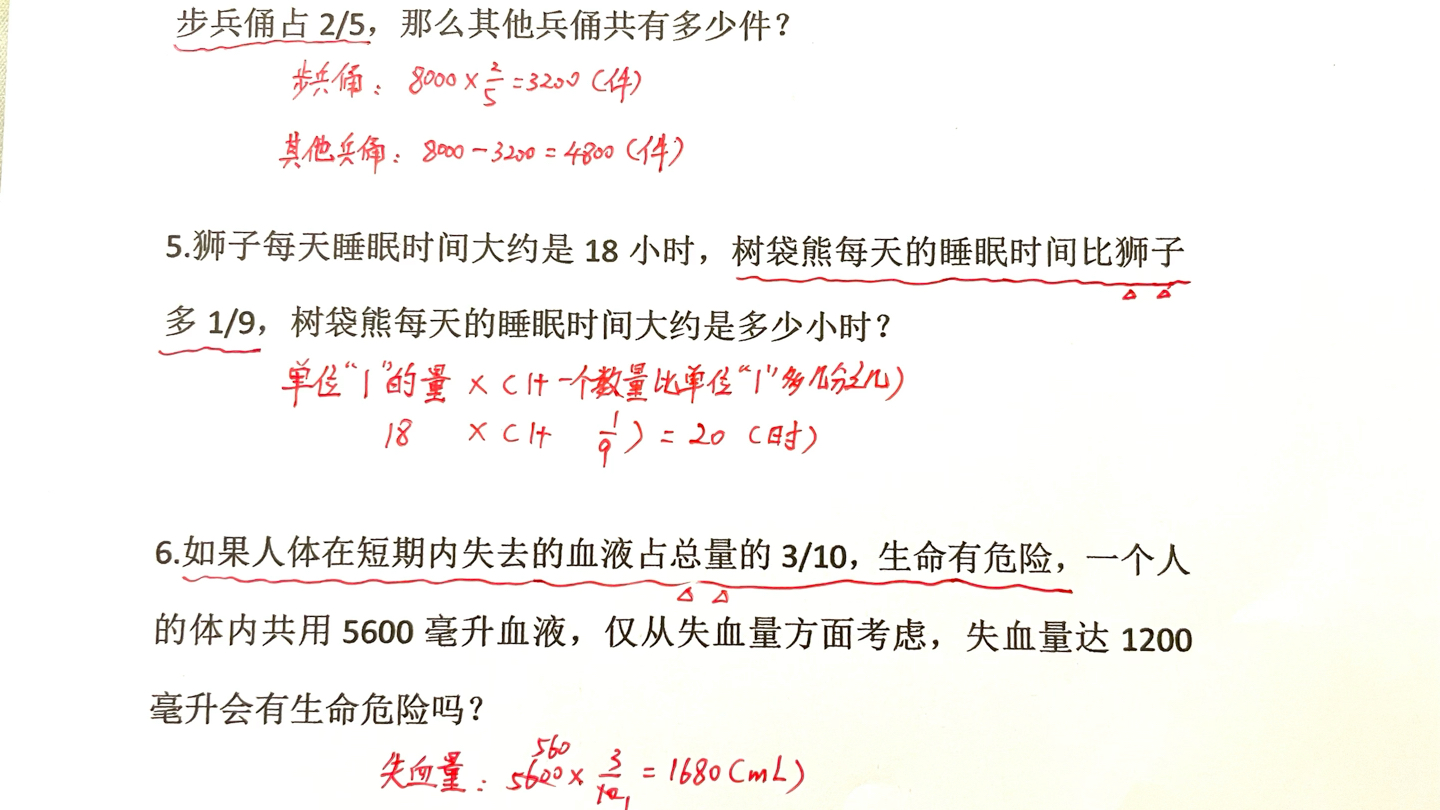 步兵俑占 2/5，那么其他兵俑共有多少件？
步兵俑：8000×2/5=3200（件）
其他兵俑：8000-3200=4800（件）
5.狮子每天睡眠时间大约是 18 小时，树袋熊每天的睡眠时间比狮子
多 1/9，树袋熊每天的睡眠时间大约是多少小时？
单位“1”的量 ×（1+一个数量比单位“1”多几分之几）
18 ×（1+ 1/9）=20（时）
6.如果人体在短期内失去的血液占总量的 3/10，生命有危险，一个人
的体内共用 5600 毫升血液，仅从失血量方面考虑，失血量达 1200
毫升会有生命危险吗？
560
失血量：5600×3/10 =1680（mL）
1